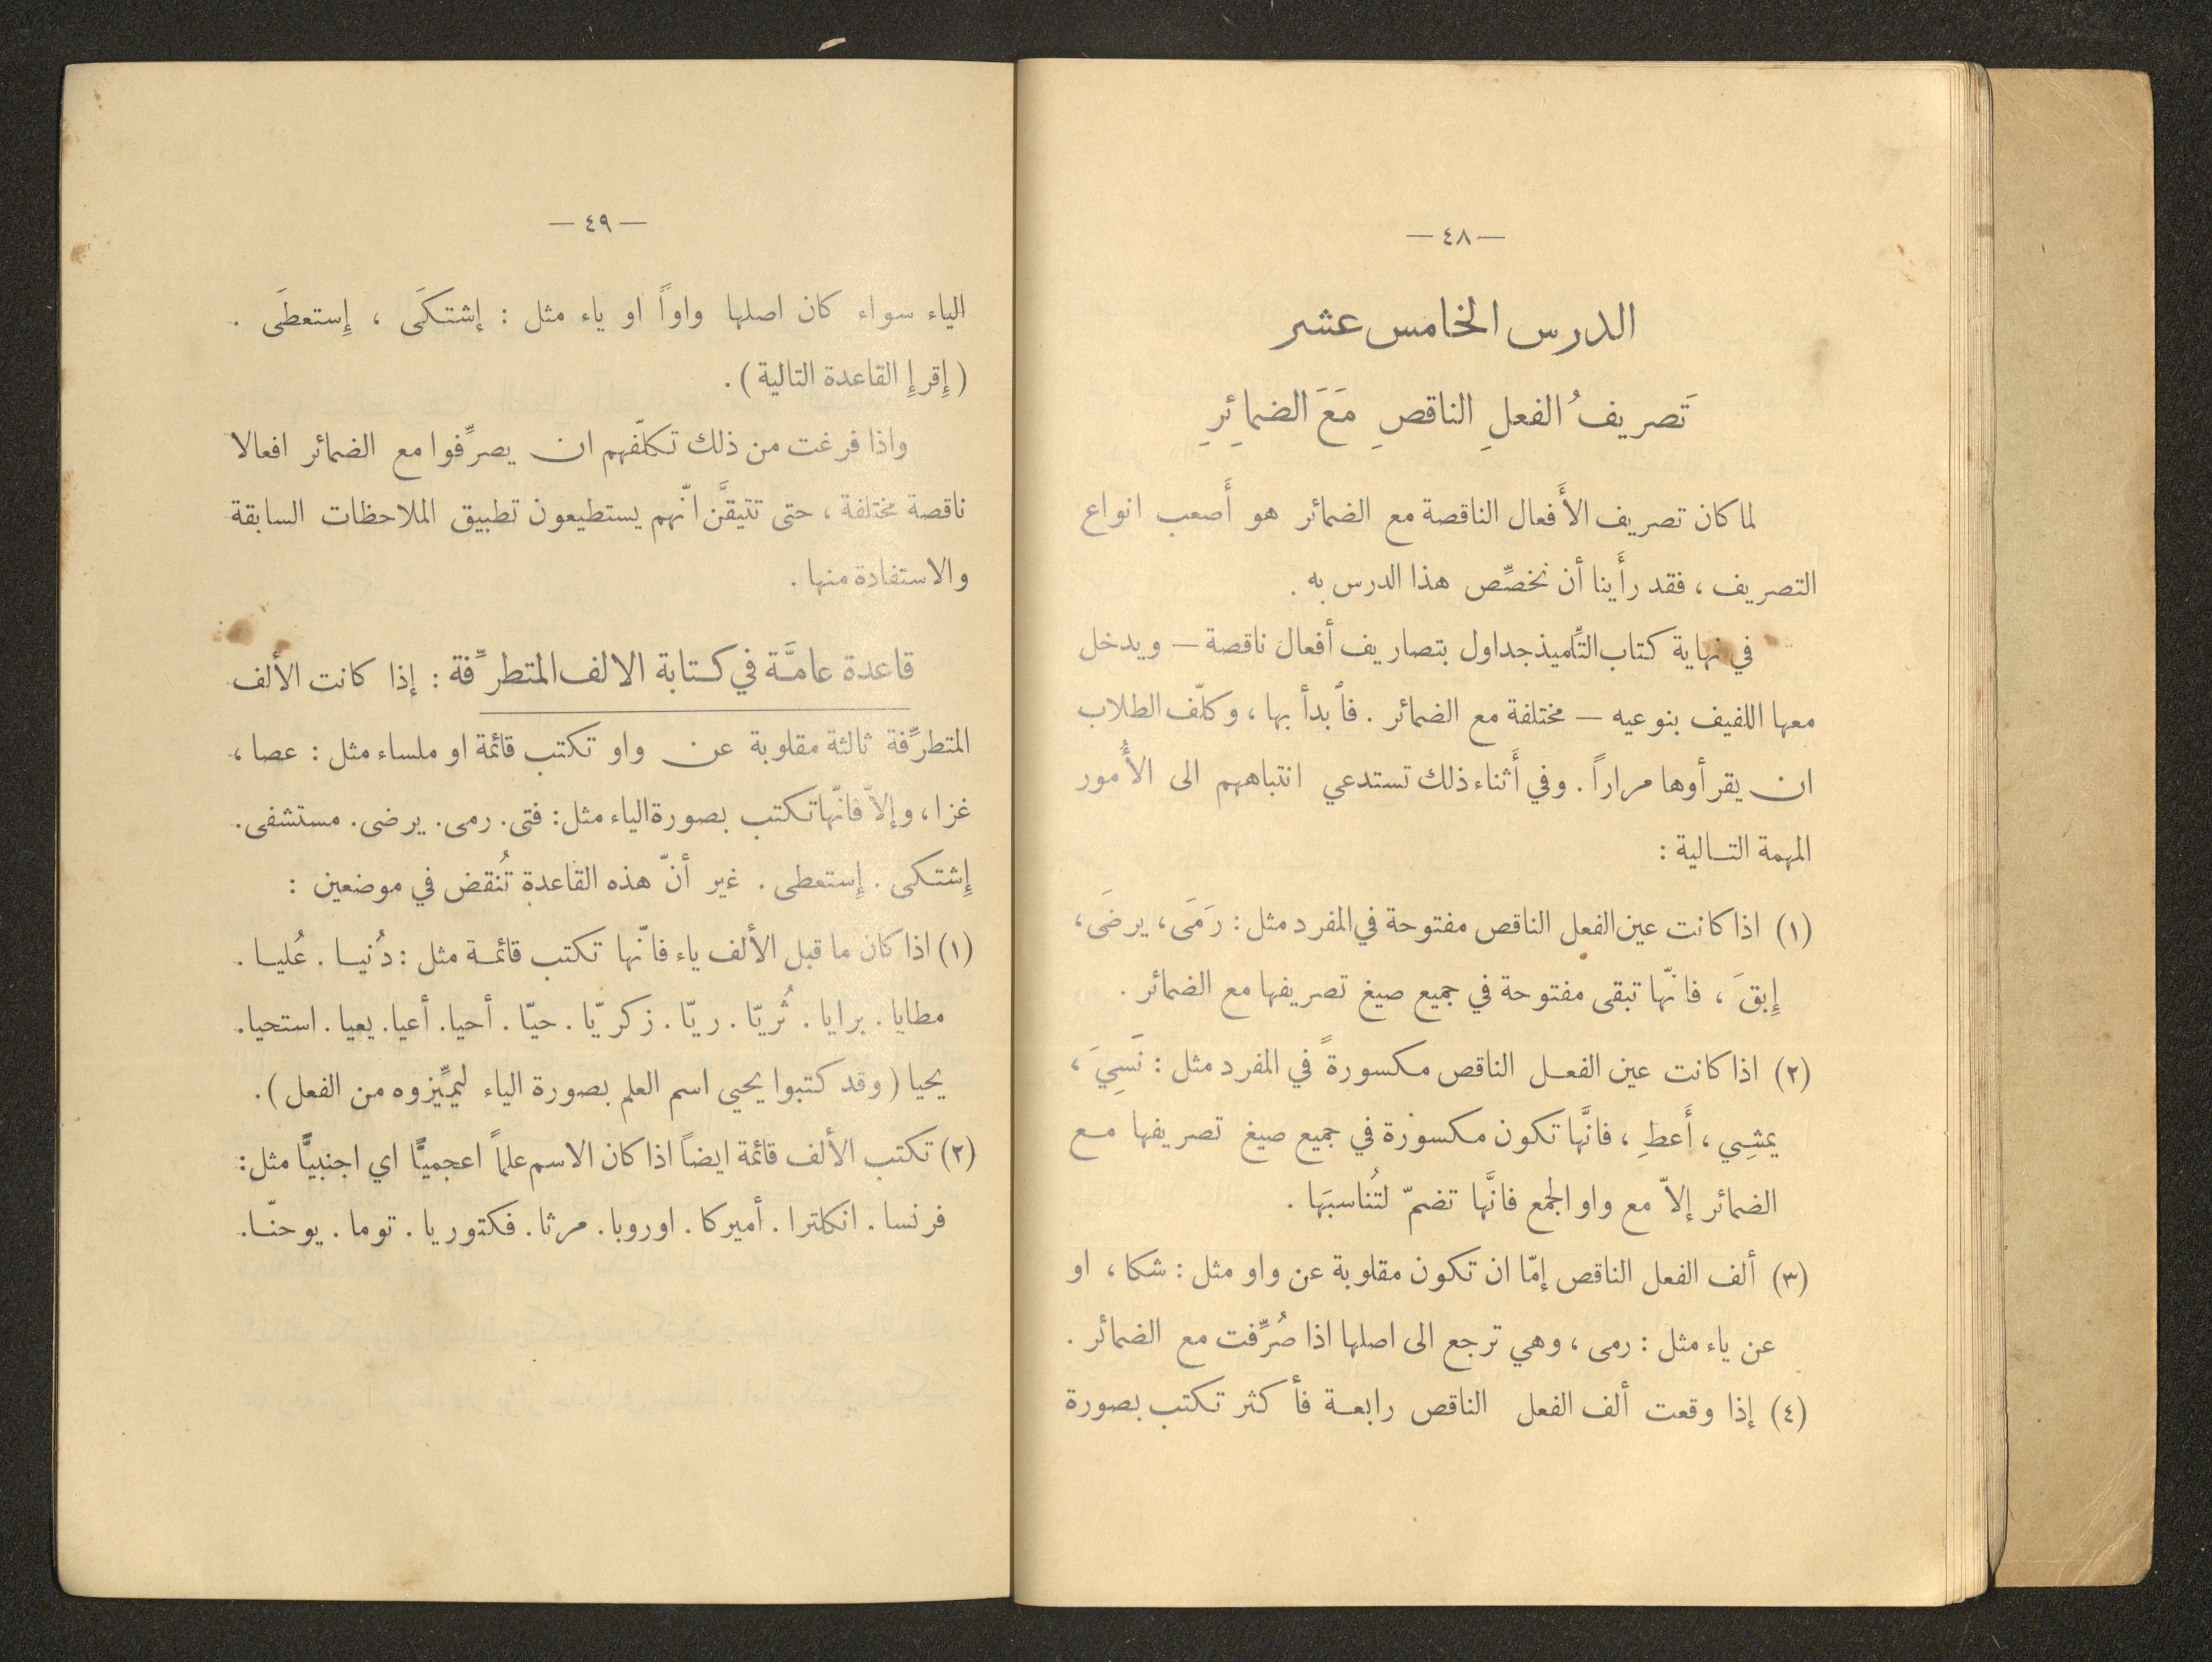 — ٤٨ —
الدرس الخامس عشر
تَصريفُ الفعلِ الناقصِ مَعَ الضمائِرِ
لما كان تصريف الأَفعال الناقصة مع الضمائر هو أَصعب انواع
التصريف ، فقد رأَينا أن نخصِّص هذا الدرس به .
في نهاية كتاب التلاميذ جداول بتصاريف أفعال ناقصة — ويدخل
معها اللفيف بنوعيه — مختلفة مع الضمائر . فأبدأ بها ، وكلّف الطلاب
ان يقرأوها مراراً . وفي أَثناء ذلك تستدعي انتباههم الى الأُمور
المهمة التالية :
(١) اذا كانت عين الفعل الناقص مفتوحة في المفرد مثل : رَمَى ، يرضَى ،
إِبقَ ، فانّها تبقى مفتوحة في جميع صيغ تصريفها مع الضمائر .
(٢) اذا كانت عين الفعل الناقص مكسورةً في المفرد مثل : نَسِيَ ،
يمشِي ، أَعطِ ، فانَّها تكون مكسورة في جميع صيغ تصريفها مع
الضمائر إلاّ مع واو الجمع فانَّها تضمّ لتُناسبَها .
(٣) ألف الفعل الناقص إمّا ان تكون مقلوبة عن واو مثل : شكا ، او
عن ياء مثل : رمى ، وهي ترجع الى اصلها اذا صُرِّفت مع الضمائر .
(٤) إذا وقعت ألف الفعل الناقص رابعة فأكثر تكتب بصورة
— ٤٩ —
الياء سواء كان اصلها واواً او ياء مثل : إشتكَى ، إِستعطَى .
( إِقرإِ القاعدة التالية ) .
واذا فرغت من ذلك تكلّفهم ان يصرِّفوا مع الضمائر افعالا
ناقصة مختلفة ، حتى تتيقَّن انّهم يستطيعون تطبيق الملاحظات السابقة
والاستفادة منها .
قاعدة عامَّة في كتابة الالف المتطرِّفة : إذا كانت الألف
المتطرِّفة ثالثة مقلوبة عن واو تكتب قائمة او ملساء مثل : عصا ،
غزا ، وإلاّ فانّها تكتب بصورة الياء مثل : فتى . رمى . يرضى . مستشفى .
إِشتكى . إِستعطى . غير أنّ هذه القاعدة تُنقض في موضعين :
(١) اذا كان ما قبل الألف ياء فانّها تكتب قائمة مثل : دُنيا . عُليا .
مطايا . برايا . ثُريّا . ريّا . زكريّا . حيّا . أحيا . أعيا . يعيا . استحيا .
يحيا ( وقد كتبوا يحيى اسم العلم بصورة الياء ليميِّزوه من الفعل ) .
(٢) تكتب الألف قائمة ايضاً اذا كان الاسم علماً اعجميًّا اي اجنبيًّا مثل :
فرنسا . انكلترا . أميركا . اوروبا . مرثا . فكتوريا . توما . يوحنّا .